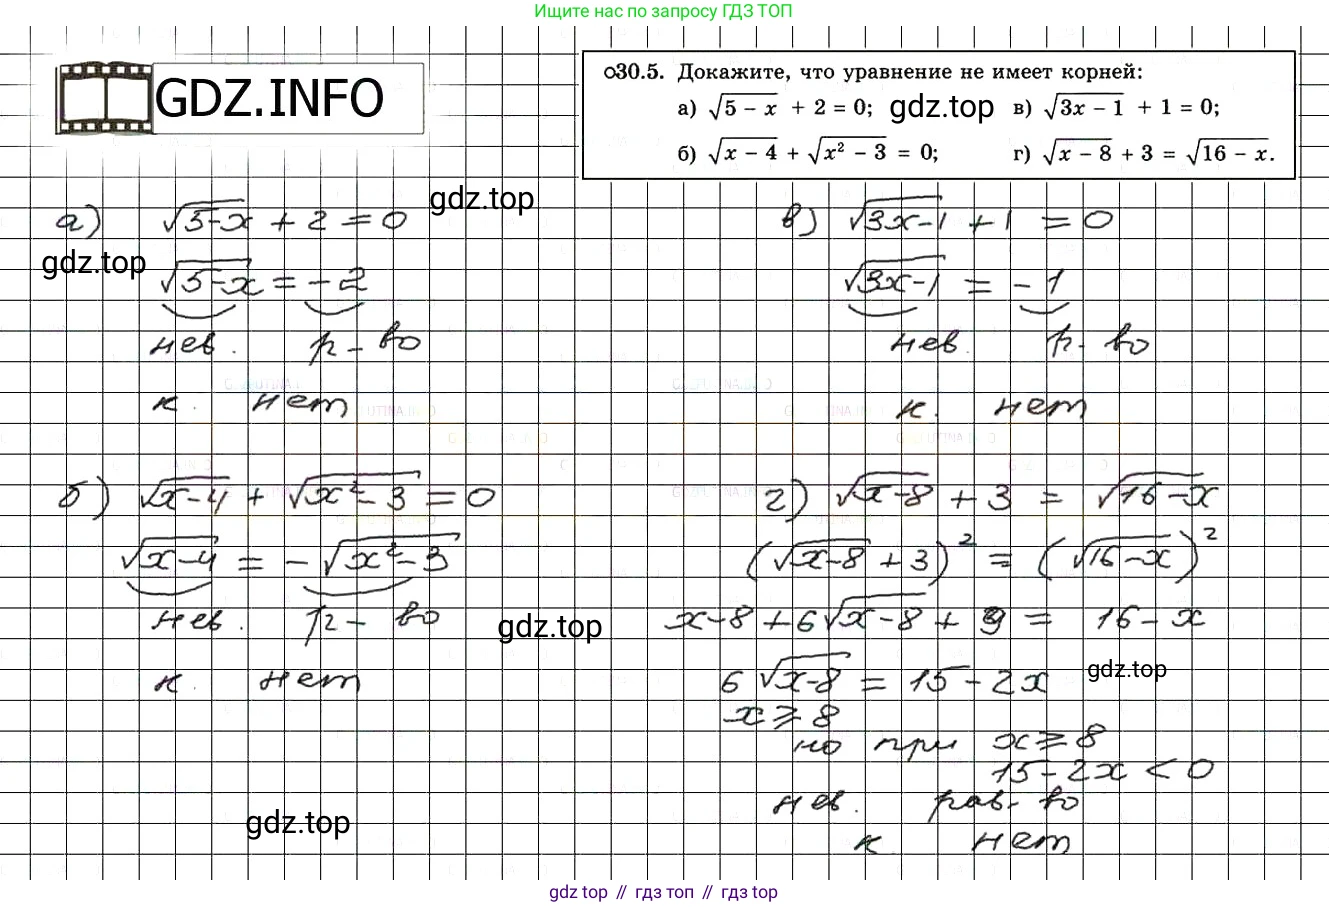 Ищите нас по запросу ГДЗ ТОП
GDZ.INFO
○30.5. Докажите, что уравнение не имеет корней:
а) √(5 − x) + 2 = 0; gdz.top в) √(3x − 1) + 1 = 0;
б) √(x − 4) + √(x² − 3) = 0; г) √(x − 8) + 3 = √(16 − x).
gdz.top
а) √(5-x) + 2 = 0
gdz.top
√(5-x) = -2
нев. р-во
к. нет
в) √(3x-1) + 1 = 0
√(3x-1) = -1
нев. р-во
к. нет
б) √(x-4) + √(x²-3) = 0
√(x-4) = -√(x²-3)
нев. р-во
gdz.top
к. нет
г) √(x-8) + 3 = √(16-x)
(√(x-8) + 3)² = (√(16-x))²
x-8 + 6√(x-8) + 9 = 16-x
gdz.top
6√(x-8) = 15-2x
x ⩾ 8
но при x ⩾ 8
15-2x < 0
нев. рав-во
к. нет
gdz.top
gdz top // гдз топ // gdz top